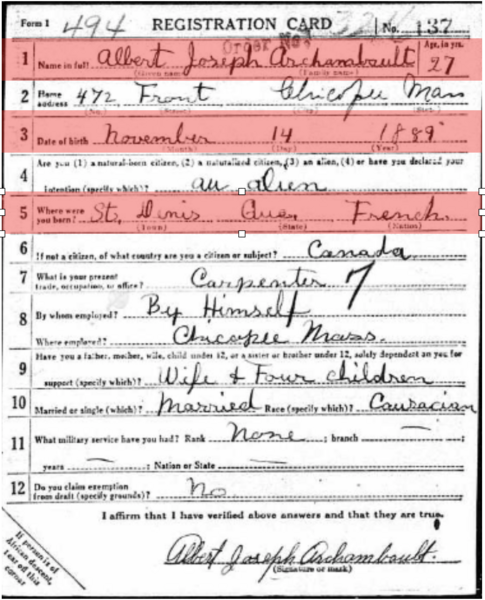 Form 1 494 REGISTRATION CARD No. 137
Order No.
1 Name in full Albert Joseph Archambault Age, in yrs. 27
(Given name) (Family name)
2 Home address 472 Front Chicopee Mass
(No.) (Street) (City) (State)
3 Date of birth November 14 1889
(Month) (Day) (Year)
4 Are you (1) a natural-born citizen, (2) a naturalized citizen, (3) an alien, (4) or have you declared your
intention (specify which)? an alien
5 Where were you born? St. Denis Que. French
(Town) (State) (Nation)
6 If not a citizen, of what country are you a citizen or subject? Canada
7 What is your present trade, occupation, or office? Carpenter 7
8 By whom employed? By Himself
Where employed? Chicopee Mass.
9 Have you a father, mother, wife, child under 12, or a sister or brother under 12, solely dependent on you for
support (specify which)? Wife & Four children
10 Married or single (which)? Married Race (specify which)? Causacian
11 What military service have you had? Rank None ; branch — ;
years — ; Nation or State —
12 Do you claim exemption from draft (specify grounds)? No
I affirm that I have verified above answers and that they are true.
Albert Joseph Archambault.
(Signature or mark)
If person is of
African descent,
tear off this
corner